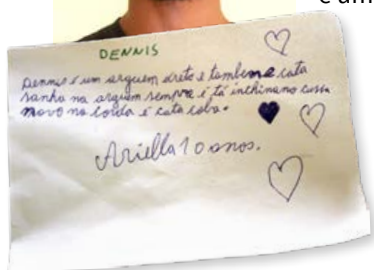 DENNIS
Dennis é um arguem dreto e tambem e cata
sanha na arguem sempre é tá inchinano cussa
novo no corda é cata caba.
Ariella 10 anos.